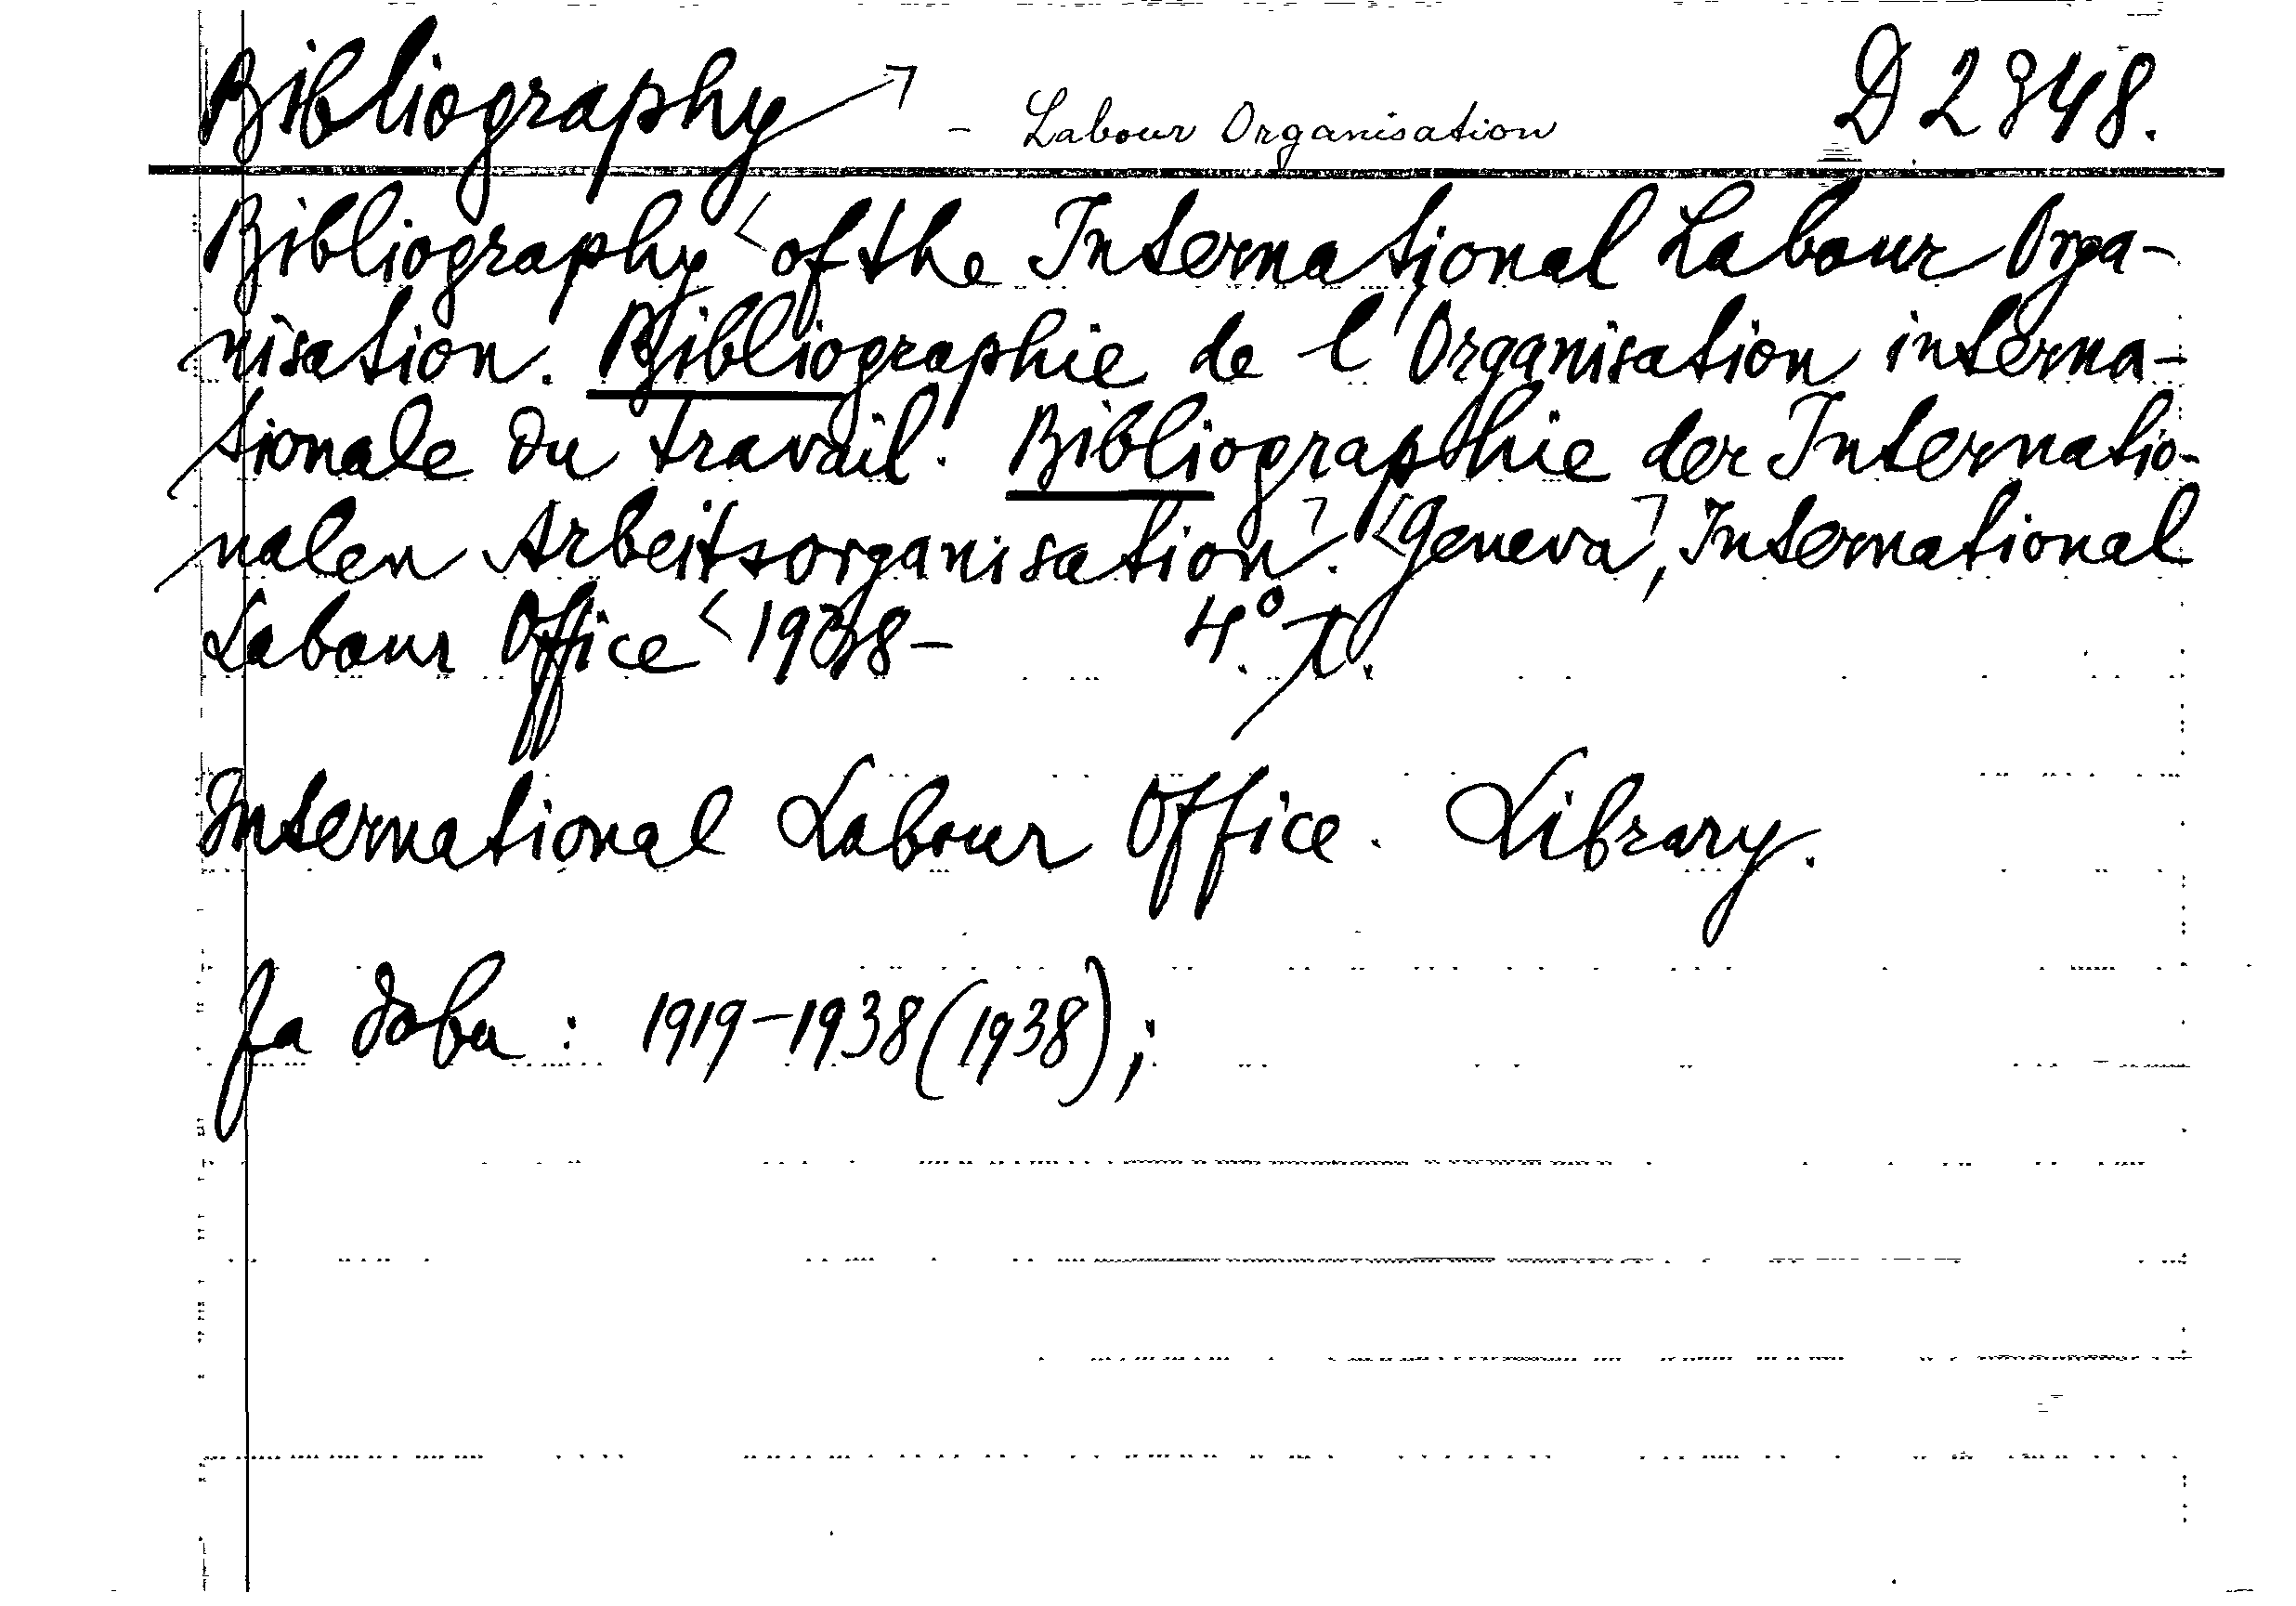 Bibliography - Labour Organisation D 2848.
Bibliography of the International Labour Orga-
nisation. Bibliographie de l'Organisation interna-
tionale du travail. Bibliographie der Internatio-
nalen Arbeitsorganisation. Geneva, International
Labour Office 1938- 4°.
International Labour Office. Library.
Za dobu: 1919-1938 (1938);